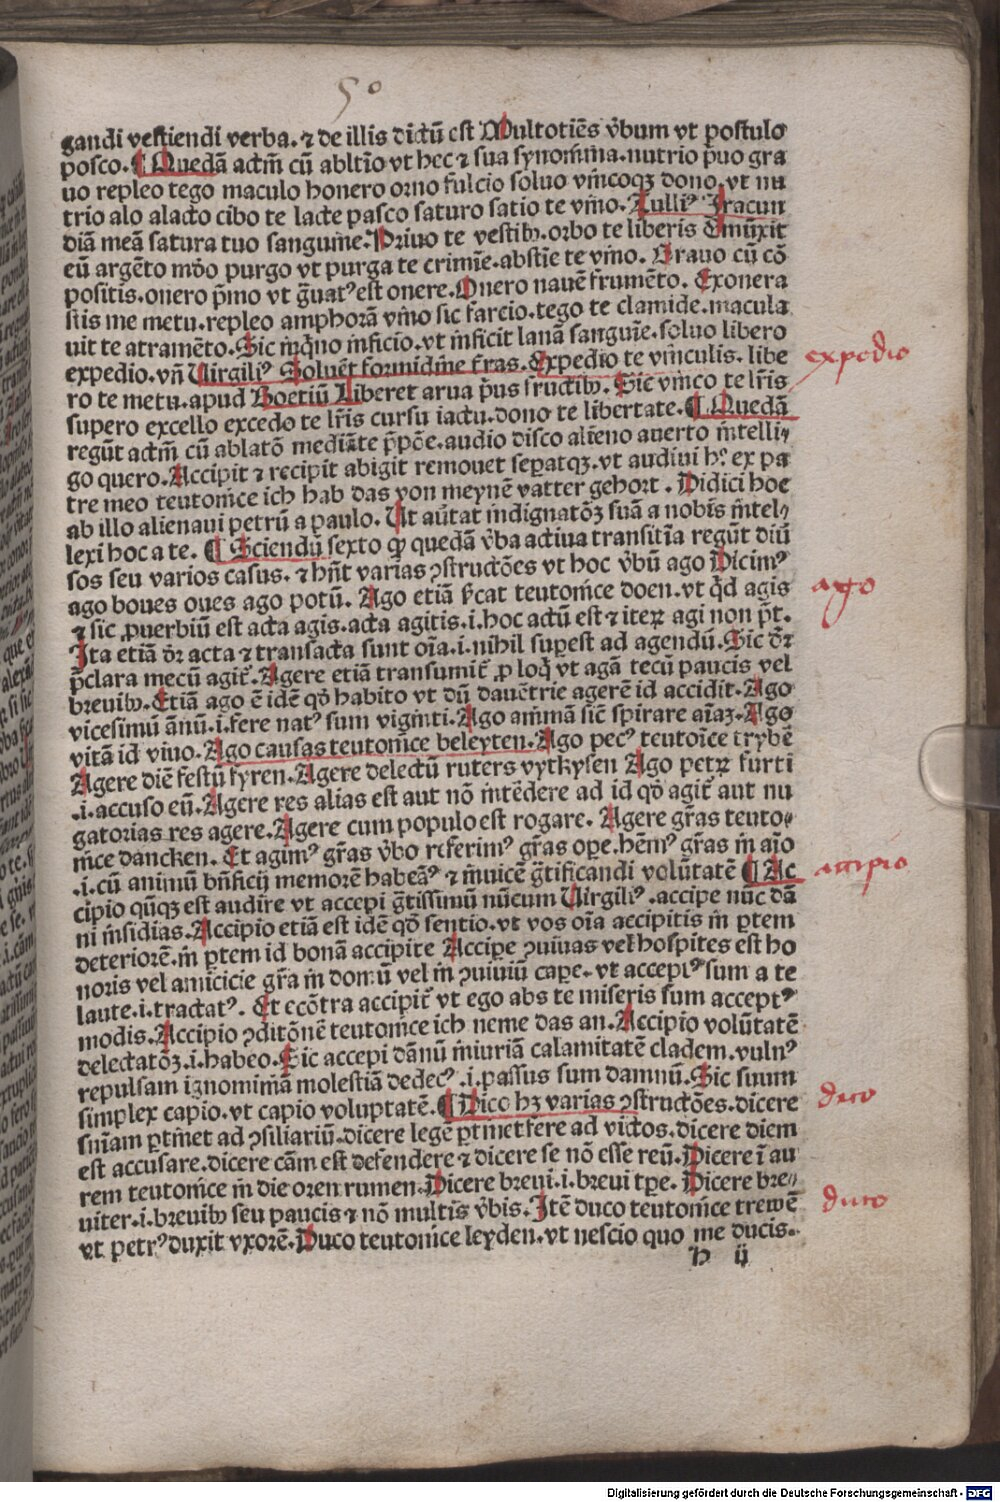 50
gandi vestiendi verba. ⁊ de illis dictū est Multotiēs v̄bum vt postulo
posco. ¶ Quedā actiū cū ablt̄io vt hec ⁊ sua synonima. nutrio p̄uo gra
uo repleo tego maculo honero orno fulcio soluo vincoqꝫ dono. vt nu
trio alo alacto cibo te lacte pasco saturo satio te vino. Tulliꝰ Iracun
diā meā satura tuo sanguine. Priuo te vestibꝫ. orbo te liberis Emūxit
eū argēto mō purgo vt purga te crimīe. abstīe te vino. Grauo cū cō
positis. onero p̄mo vt g̃uatꝰ est onere. Onero nauē frumēto. Exonera
stis me metu. repleo amphorā vino sic farcio. tego te clamide. macula
uit te atramēto. Sic inq̇no inficio. vt inficit lanā sanguīe. soluo libero
expedio. vn̄ Virgiliꝰ Soluēt formidine t̄ras. Expedio te vinculis. libe
ro te metu. apud Boetiū Liberet arua p̄us fructibꝫ. Sic vinco te lr̄is
supero excello excedo te lr̄is cursu iactu. dono te libertate. ¶ Quedā
regūt actm̄ cū ablatō mediāte p̄pōe. audio disco alieno auerto intelli
go quero. Accipit ⁊ recipit abigit remouet sep̱atqꝫ. vt audiui h° ex pa
tre meo teutonice ich hab das von meynē vatter gehort. Didici hoc
ab illo alienaui petrū a paulo. Ut aūtat indignatōꝫ suā a nobis intel
lexi hoc a te. ¶ Sciendū sexto ꝙ quedā v̄ba actiua transitīa regūt diū
sos seu varios casus. ⁊ hn̄t varias ꝯstructōes vt hoc v̄bū ago Dicimꝰ
ago boues oues ago potū. Ago etiā s̄cat teutonice doen. vt qͥd agis
⁊ sic ꝓuerbiū est acta agis. acta agitis. i. hoc actū est ⁊ iteꝝ agi non p̄t.
Ita etiā dr̄ acta ⁊ transacta sunt oīa. i. nihil sup̱est ad agendū. Sic dr̄
p̄clara mecū agit̄. Agere etiā transumit̄ ꝓ loqͥ vt agā tecū paucis vel
breuibꝫ. Etiā ago ē idē qd̓ habito vt dū dauētrie agerē id accidit. Ago
vicesimū ānū. i. fere natꝰ sum viginti. Ago animā sic̄ spirare aīaꝫ. Ago
vitā id viuo. Ago causas teutonice beleyten. Ago pecꝰ teutoīce trybē
Agere diē festū fyren. Agere delectū ruters vytkysen Ago petꝝ furti
.i. accuso eū. Agere res alias est aut nō intēdere ad id qd̓ agit̄ aut nu
gatorias res agere. Agere cum populo est rogare. Agere gr̄as teuto
nice dancken. Et agimꝰ gr̄as v̄bo referimꝰ gr̄as op̱e. hēmꝰ gr̄as in aīo
.i. cū animū bn̄ficij memorē habeāꝰ ⁊ inuicē g̃tificandi volūtatē ¶ Ac
cipio qn̄qꝫ est audire vt accepi g̃tissimū nūcum Virgiliꝰ. accipe nūc dā
ni insidias. Accipio etiā est idē qd̓ sentio. vt vos oīa accipitis in p̱tem
deteriorē. in p̱tem id bonā accipite Accipe ꝯuiuas vel hospites est ho
noris vel amicicie gr̄a in domū vel in ꝯuiuiū cap̱e. vt acceptꝰ sum a te
laute. i. tractatꝰ. Et ecōtra accipit̄ vt ego abs te miseris sum acceptꝰ
modis. Accipio ꝯditōnē teutonice ich neme das an. Accipio volūtatē
delectatōꝫ. i. habeo. Sic accepi dānū iniuriā calamitatē cladem. vulnꝰ
repulsam ignominiā molestiā dedecꝰ. i. passus sum damnū. Sic suum
simplex capio. vt capio voluptatē. ¶ Dico hꝫ varias ꝯstructōes. dicere
sn̄iam p̱tinet ad ꝯsiliariū. dicere legē p̱tinet fere ad victos. dicere diem
est accusare. dicere cām est defendere ⁊ dicere se nō esse reū. Dicere ī au
rem teutonice in die oren rumen. Dicere breui. i. breui tp̱e. Dicere bre
uiter. i. breuibꝫ seu paucis ⁊ nō multis v̄bis. Itē duco teutonice trewē
vt petrꝰ duxit vxorē. Duco teutonice leyden. vt nescio quo me ducis.
h ij
expedio
ago
accipio
dico
duco
Digitalisierung gefördert durch die Deutsche Forschungsgemeinschaft - DFG